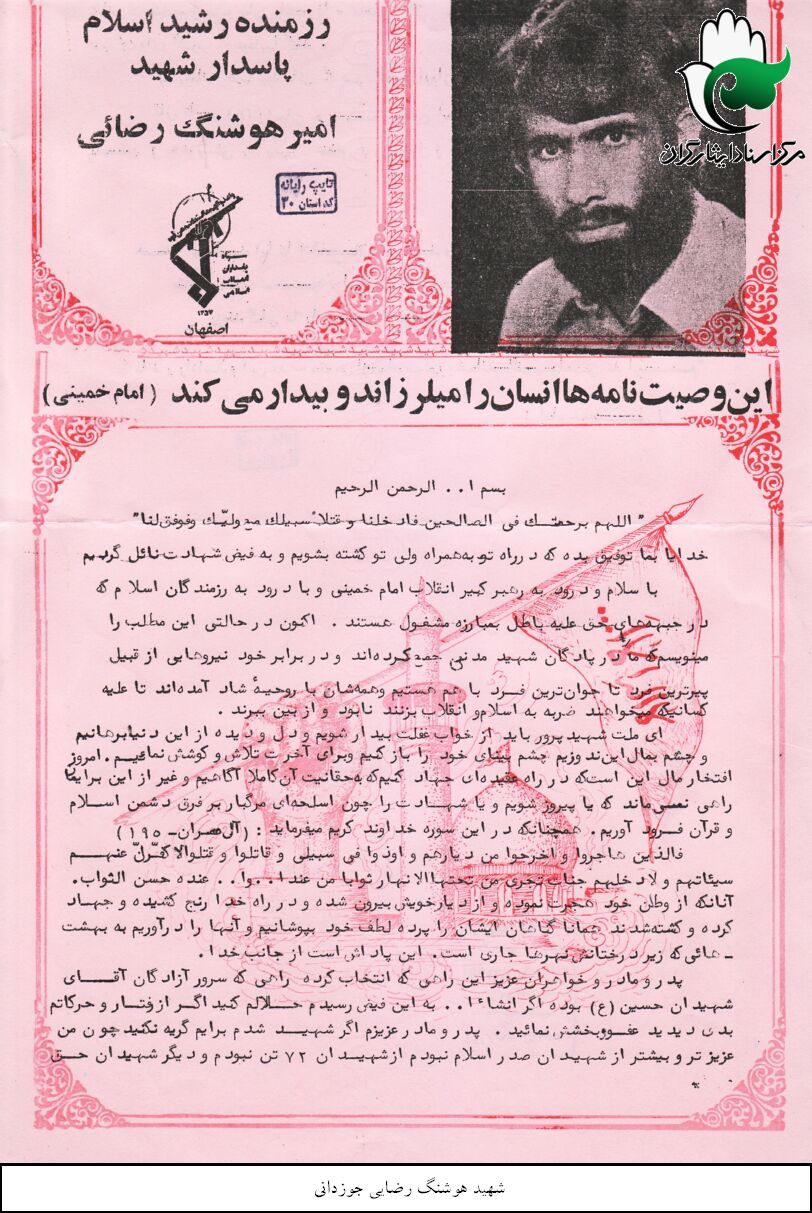 رزمنده رشید اسلام
پاسدار شهید
امیر هوشنگ رضائی
تایپ رایانه
کد استان ۳۰
سپاه
پاسداران
انقلاب
اسلامی
۱۳۵۷
اصفهان
مرکز اسناد ایثارگران
این وصیت نامه ها انسان را میلرزاند و بیدار می کند (امام خمینی)
بسم ا.. الرحمن الرحیم
" اللهم برحمتك فی الصالحین فادخلنا و قتلاً سبیلك مع ولیّك و فوفق لنا"
خدایا بما توفیق بده که در راه تو به همراه ولی تو کشته بشویم و به فیض شهادت نائل گردیم
با سلام و درود به رهبر کبیر انقلاب امام خمینی و با درود به رزمندگان اسلام که
در جبهه‌های حق علیه باطل بمبارزه مشغول هستند . اکنون در حالتی این مطلب را
مینویسم که ما در پادگان شهید مدنی جمع کرده‌اند و در برابر خود نیروهایی از قبیل
پیرترین فرد تا جوان‌ترین فرد با هم هستیم وهمه‌شان با روحیهٔ شاد آمده‌اند تا علیه
کسانیکه میخواهند ضربه به اسلام و انقلاب بزنند نابود و از بین ببرند .
ای ملت شهید پرور باید از خواب غفلت بیدار شویم و دل و دیده از این دنیا برهانیم
و چشم بمال این ندوزیم چشم بینای خود را باز کنیم وبرای آخرت تلاش و کوشش نمائیم . امروز
افتخار مال این است که در راه عقیده‌ای جهاد کنیم که به حقانیت آن کاملا آگاهیم و غیر از این برای ما
راهی نمی‌ماند که یا پیروز شویم و یا شهادت را چون اسلحه‌ای مرگبار بر فرق دشمن اسلام
و قرآن فرود آوریم . همچنانکه در این سوره خداوند کریم میفرماید : (آل عمران ـ ۱۹۵)
فالذین هاجروا و اخرجوا من دیارهم و اوذوا فی سبیلی و قاتلوا و قتلوا لا کفرنّ عنهم
سیئاتهم و لادخلنهم جنات تجری من تحتها الا نهار ثوابا من عند ا..وا.. عنده حسن الثواب.
آنانکه از وطن خود هجرت نموده و از دیار خویش بیرون شده و در راه خدا رنج کشیده و جهاد
کرده و کشته شدند همانا گناهان ایشان را پرده لطف خود بپوشانیم و آنها را درآوریم به بهشت
ـ هائی که زیر درختانش نهرها جاری است . این پاداش است از جانب خدا .
پدر و مادر و خواهران عزیز این راهی که انتخاب کرده راهی که سرور آزادگان آقای
شهیدان حسین (ع) بوده اگر انشاء ا.. به این فیض رسیدم حلالم کنید اگر از رفتار و حرکاتم
بدی دیدید عفووبخشش نمائید . پدر و مادر عزیزم اگر شهید شدم برایم گریه نکنید چون من
عزیز تر و بیشتر از شهیدان صدر اسلام نبودم از شهیدان ۷۲ تن نبودم و دیگر شهیدان حق
شهید هوشنگ رضایی جوزدانی